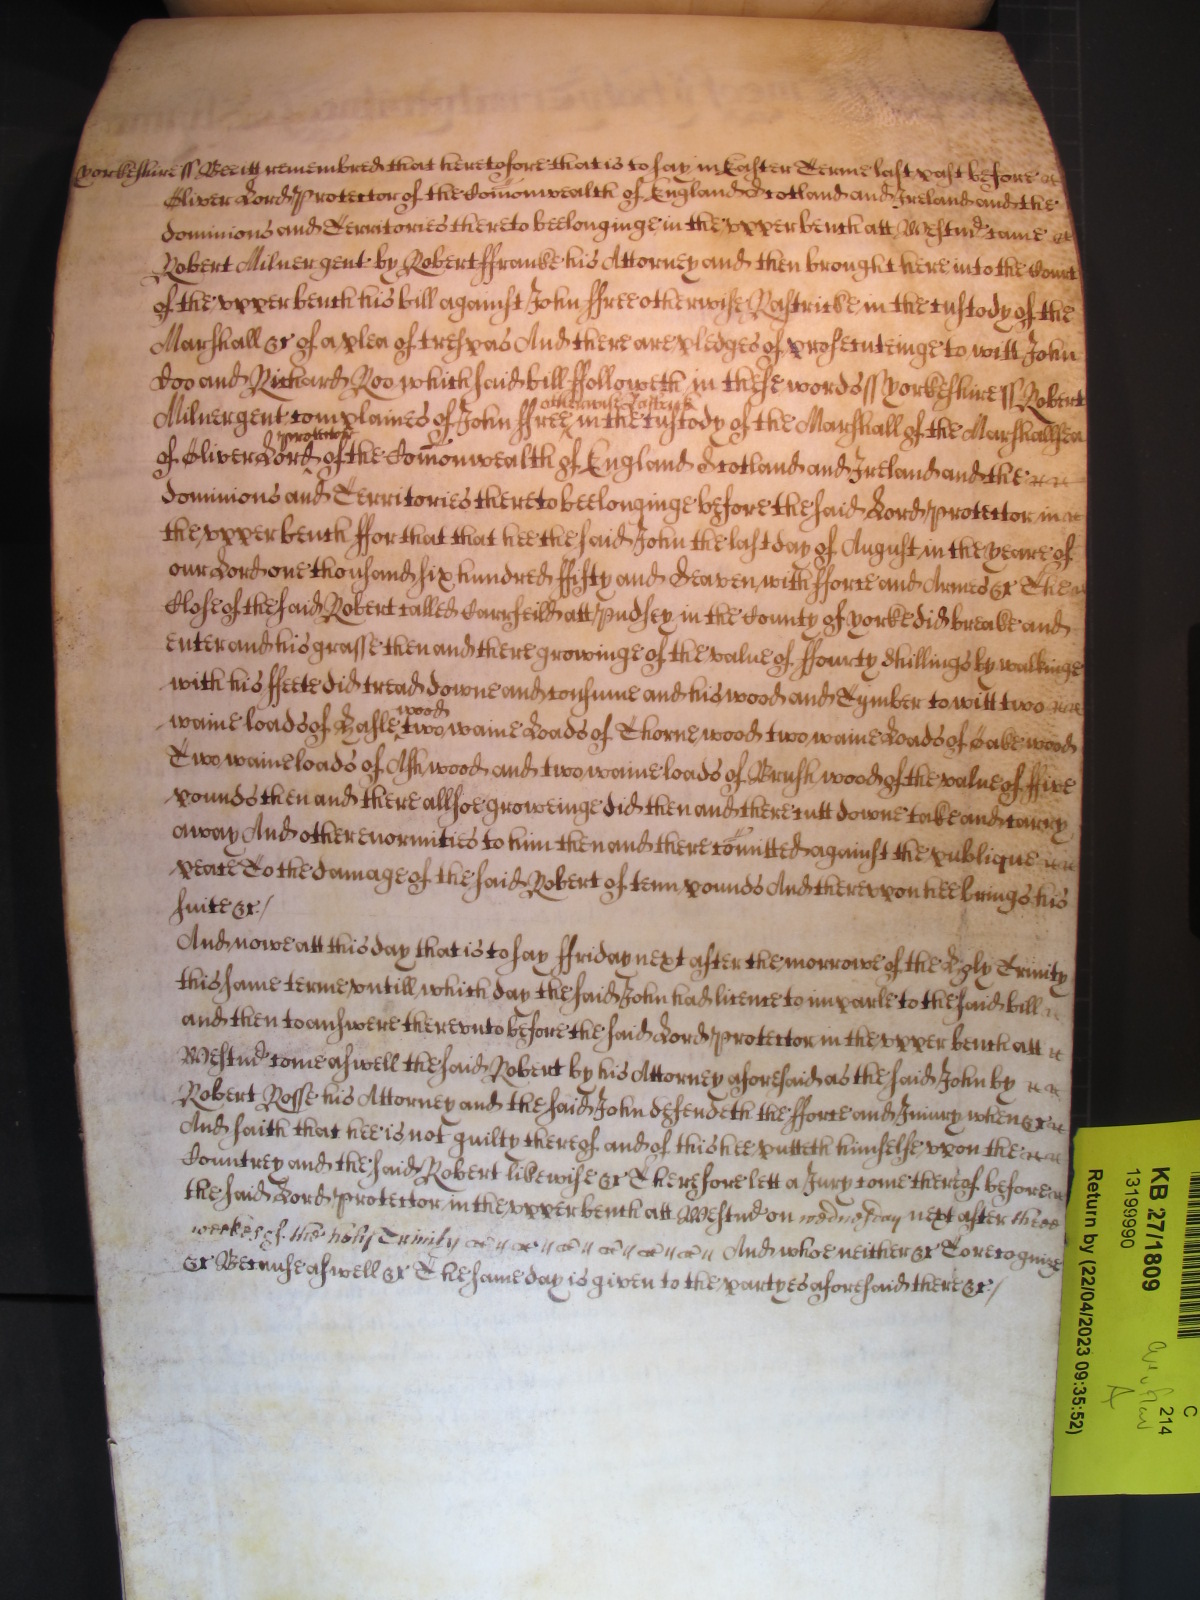 Yorkeshire ss Bee itt remembred that heretofore that is to say in Easter Terme last past before
Oliver Lord Protector of the Comonwealth of England Scotland and Ireland and the
dominions and Territories thereto beelonginge in the upper bench att Westmr came
Robert Milner gent by Robert ffranke his Attorney and then brought here into the Court
of the upper bench his bill against John ffree otherwise Rastricke in the custody of the
Marshall &c of a plea of trespas And there are pledges of prosecuteinge to witt John
Doo and Richard Roo which said bill ffolloweth in these words ss Yorkeshire ss Robert
otherwise Rastrick
Milner gent complaines of John ffree in the custody of the Marshall of the Marshallsea
protector
of Oliver Lord of the Comonwealth of England Scotland and Ireland and the
dominions and Territories thereto beelonginge before the said Lord Protector in
the upper bench ffor that that hee the said John the last day of August in the yeare of
our Lord one thousand six hundred ffifty and Seaven with fforce and Armes &c The
Close of the said Robert called Carrfeild att Pudsey in the County of Yorke did breake and
enter and his grasse then and there growinge of the value of ffourty Shillings by walkinge
with his ffeete did tread downe and consume and his wood and Tymber to witt two
wood
waine loads of Hasle two waine Loads of Thorne wood two waine Loads of Oake wood
Two waine loads of Ash wood and two waine loads of Brush wood of the value of ffive
pounds then and there allsoe groweinge did then and there cutt downe take and carry
away And other enormities to him then and there comitted against the publique
peace To the damage of the said Robert of tenn pounds And thereupon hee brings his
suite &c/
And nowe att this day that is to say ffriday next after the morrowe of the Holy Trinity
this same terme untill which day the said John had licence to imparle to the said bill
and then to answere thereunto before the said Lord Protector in the upper bench att
Westmr come aswell the said Robert by his Attorney aforesaid as the said John by
Robert Rosse his Attorney and the said John defendeth the fforce and Iniury when &c
And saith that hee is not guilty thereof and of this hee putteth himselfe upon the
Countrey and the said Robert likewise &c Therefore lett a Jury come thereof before
the said Lord Protector in the upper bench att Westmr on wednesday next after three
weekes of the holy Trinity And whoe neither &c To recognize
&c Because aswell &c The same day is given to the partyes aforesaid there &c/
KB 27/1809
13199990
Return by (22/04/2023 09:35:52)
C
214